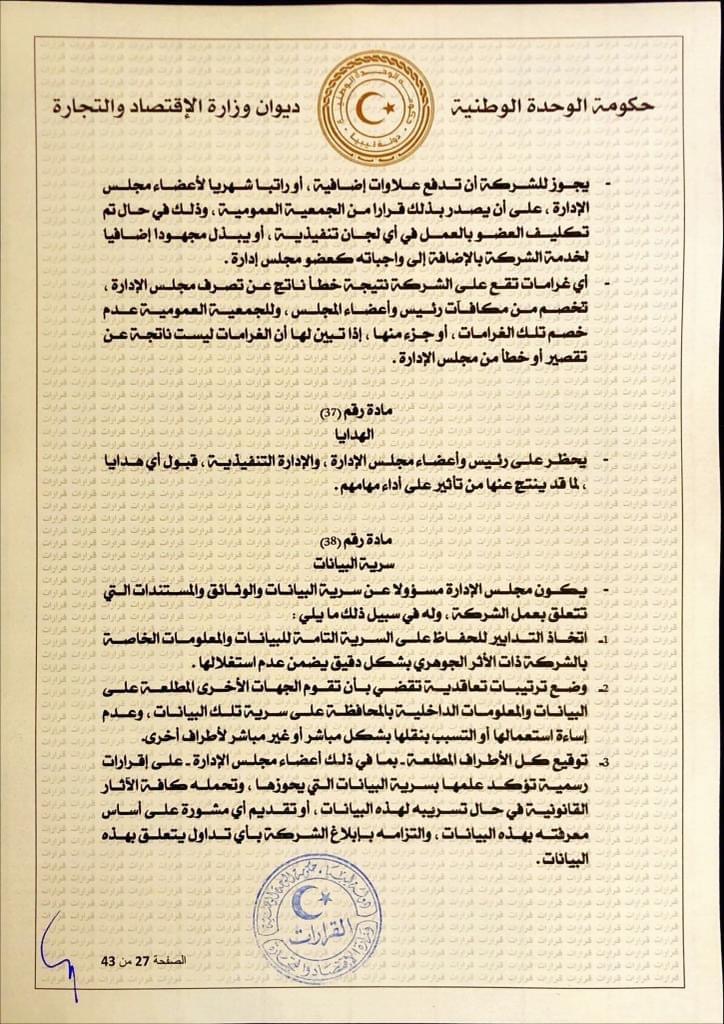 حكومة الوحدة الوطنية
ديوان وزارة الإقتصاد والتجارة
دولة ليبيا
- يجوز للشركة أن تدفع علاوات إضافية ، أو راتبا شهريا لأعضاء مجلس
الإدارة ، على أن يصدر بذلك قرارا من الجمعية العمومية ، وذلك في حال تم
تكليف العضو بالعمل في أي لجان تنفيذية ، أو يبذل مجهودا إضافيا
لخدمة الشركة بالإضافة إلى واجباته كعضو مجلس إدارة .
- أي غرامات تقع على الشركة نتيجة خطأ ناتج عن تصرف مجلس الإدارة ،
تخصم من مكافآت رئيس وأعضاء المجلس ، وللجمعية العمومية عدم
خصم تلك الغرامات ، أو جزء منها ، إذا تبين لها أن الغرامات ليست ناتجة عن
تقصير أو خطأ من مجلس الإدارة .
مادة رقم (37)
الهدايا
- يحظر على رئيس وأعضاء مجلس الإدارة ، والإدارة التنفيذية ، قبول أي هدايا
، لما قد ينتج عنها من تأثير على أداء مهامهم .
مادة رقم (38)
سرية البيانات
- يكون مجلس الإدارة مسؤولا عن سرية البيانات والوثائق والمستندات التي
تتعلق بعمل الشركة ، وله في سبيل ذلك ما يلي :
1- اتخاذ التدابير للحفاظ على السرية التامة للبيانات والمعلومات الخاصة
بالشركة ذات الأثر الجوهري بشكل دقيق يضمن عدم استغلالها .
2- وضع ترتيبات تعاقدية تقضي بأن تقوم الجهات الأخرى المطلعة على
البيانات والمعلومات الداخلية بالمحافظة على سرية تلك البيانات ، وعدم
إساءة استعمالها أو التسبب بنقلها بشكل مباشر أو غير مباشر لأطراف أخرى.
3- توقيع كل الأطراف المطلعة - بما في ذلك أعضاء مجلس الإدارة - على إقرارات
رسمية تؤكد علمها بسرية البيانات التي يحوزها ، وتحمله كافة الآثار
القانونية في حال تسريبه لهذه البيانات ، أو تقديم أي مشورة على أساس
معرفته بهذه البيانات ، والتزامه بإبلاغ الشركة بأي تداول يتعلق بهذه
البيانات .
القرارات
وزارة الإقتصاد والتجارة
الصفحة 27 من 43